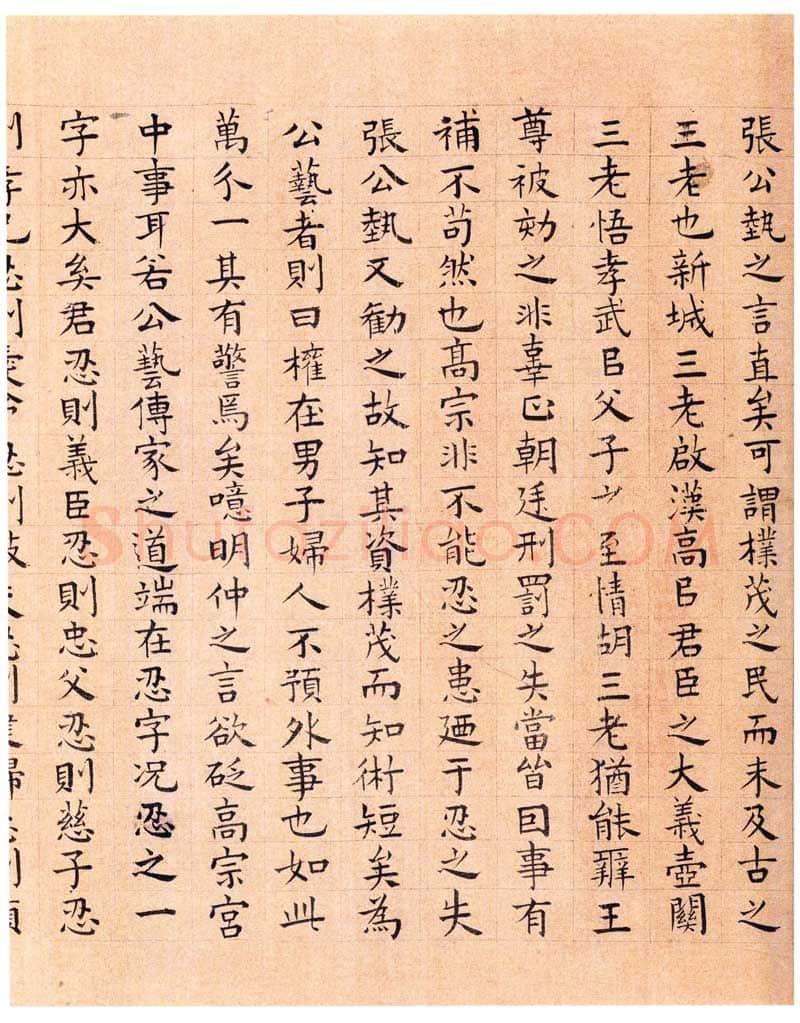 張公埶之言直矣可謂樸茂之民而未及古之
三老也新城三老啟漢高㠯君臣之大義壺關
三老悟孝武㠯父子之至情胡三老猶能辭王
尊被劾之非辜正朝廷刑罰之失當皆因事有
補不苟然也髙宗非不能忍之患廼于忍之失
張公埶又勸之故知其資樸茂而知術短矣為
公藝者則曰權在男子婦人不預外事也如此
萬分一其有警焉矣噫明仲之言欲砭高宗宮
中事耳若公藝傳家之道端在忍字况忍之一
字亦大矣君忍則義臣忍則忠父忍則慈子忍
Shufaziliao.COM